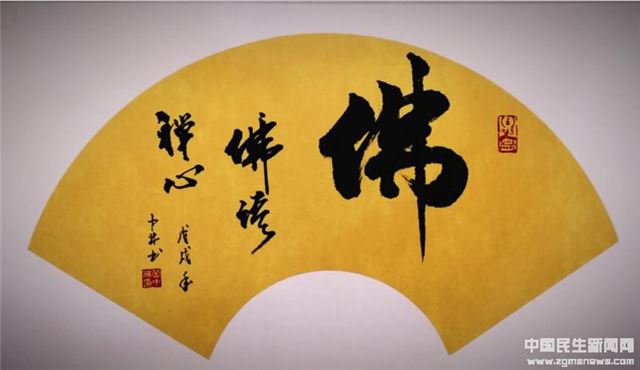 佛
佛缘
禪心
戊戌年
中国民生新闻网
www.zgmsnews.com